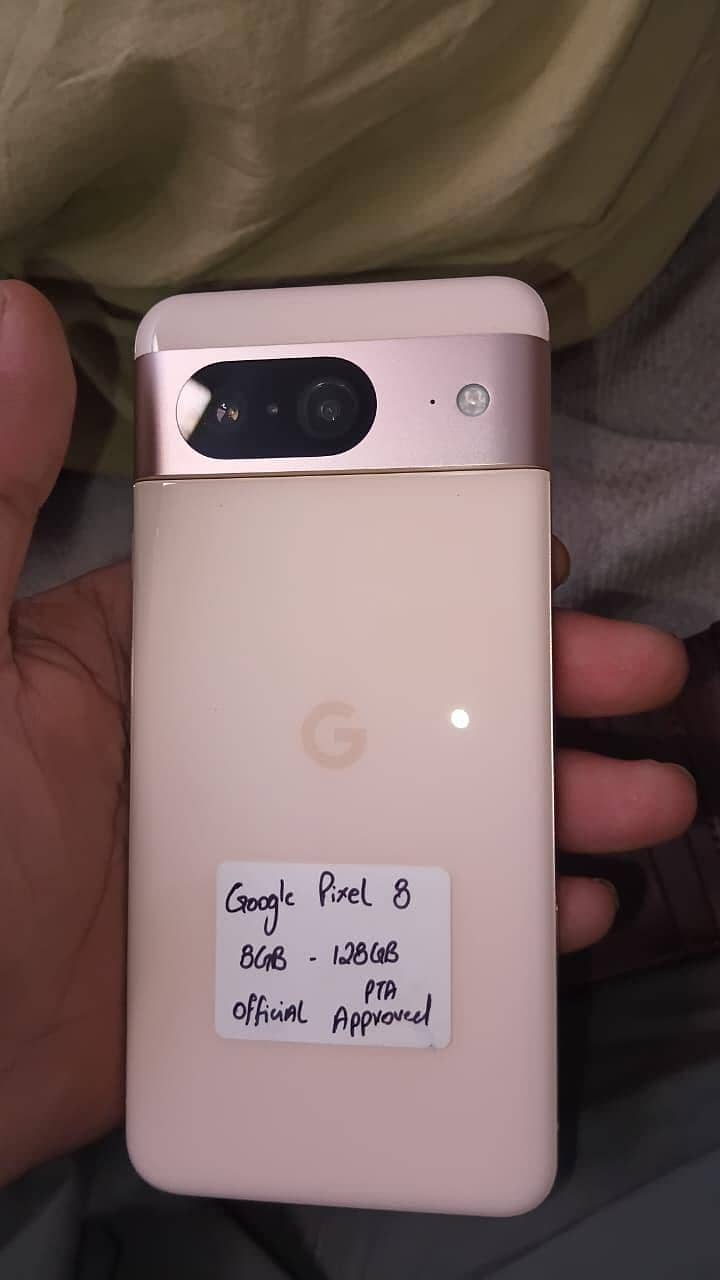 G
Google Pixel 8
8GB - 128GB
Official PTA Approved